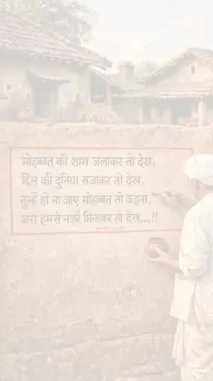 मोहब्बत की शाम जलाकर तो देख,
दिल की दुनिया सजाकर तो देख,
तुम्हें हो ना जाए मोहब्बत तो कहना,
जरा हमसे नज़रें मिलाकर तो देख,,,,!!